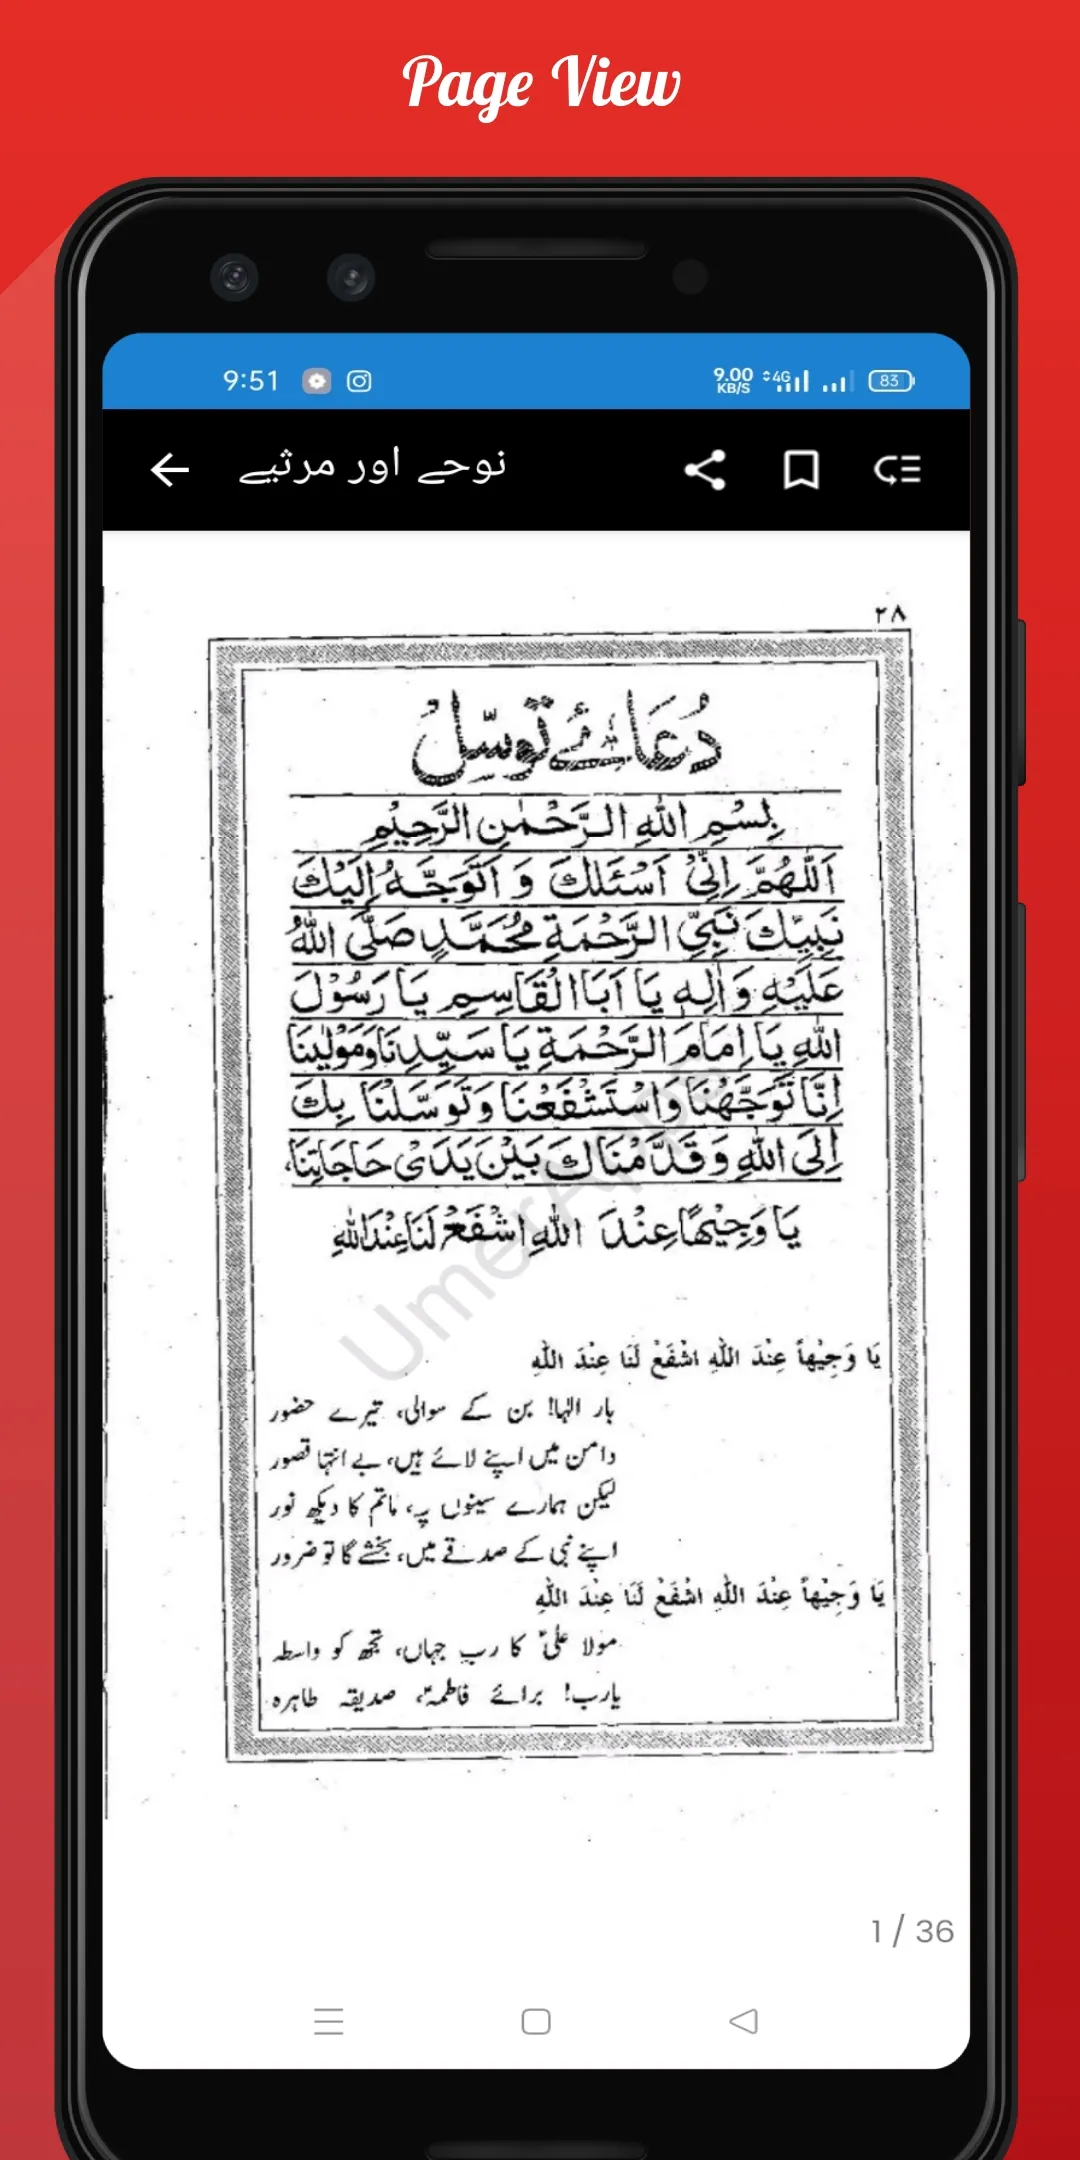 Page View
9:51
9.00
KB/S
4G
83
نوحے اور مرثیے
۲۸
دُعَائے تَوسّلُ
بِسْمِ اللّٰهِ الرَّحْمٰنِ الرَّحِيْمِ
اَللّٰهُمَّ اِنِّيْ اَسْئَلُكَ وَ اَتَوَجَّهُ اِلَيْكَ
نَبِيِّكَ نَبِيِّ الرَّحْمَةِ مُحَمَّدٍ صَلَّى اللّٰهُ
عَلَيْهِ وَاٰلِهٖ يَا اَبَا الْقَاسِمِ يَا رَسُوْلَ
اللّٰهِ يَا اِمَامَ الرَّحْمَةِ يَا سَيِّدِنَا وَمَوْلٰينَا
اِنَّا تَوَجَّهْنَا وَاسْتَشْفَعْنَا وَتَوَسَّلْنَا بِكَ
اِلَى اللّٰهِ وَقَدَّمْنَاكَ بَيْنَ يَدَىْ حَاجَاتِنَا،
يَا وَجِيْهًا عِنْدَ اللّٰهِ اشْفَعْ لَنَا عِنْدَ اللّٰهِ
يَا وَجِيْهاً عِنْدَ اللّٰهِ اشْفَعْ لَنَا عِنْدَ اللّٰهِ
بار الٰہا! بن کے سوالی، تیرے حضور
دامن میں اپنے لائے ہیں، بے انتہا قصور
لیکن ہمارے سینوں پہ، ماتم کا دیکھ نور
اپنے نبی کے صدقے میں، بخشے گا تو ضرور
يَا وَجِيْهاً عِنْدَ اللّٰهِ اشْفَعْ لَنَا عِنْدَ اللّٰهِ
مولا علیؑ کا رب جہاں، تجھ کو واسطہ
یارب! برائے فاطمہؑ، صدیقہ طاہرہ
UmerApps
1 / 36